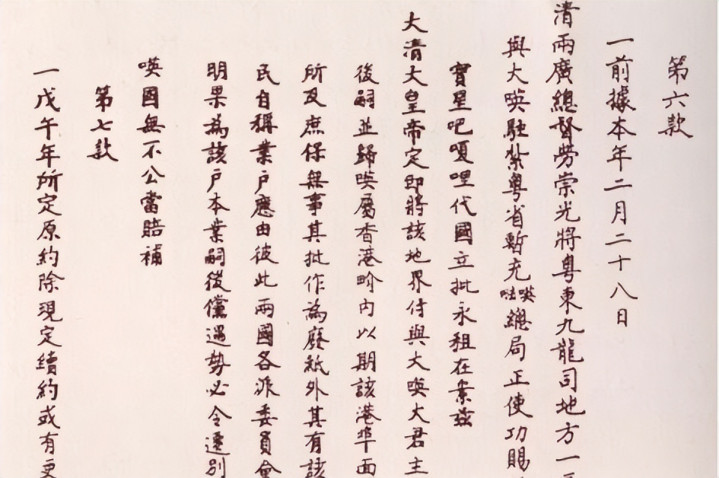 第六款
一前據本年二月二十八日
清兩廣總督勞崇光將粵東九龍司地方一
與大㗸駐紮粵省暫充㗸𠵽總局正使功賜
寶星吧嗄哩代國立批永租在案茲
大清大皇帝定即將該地界付與大㗸大君主
後嗣並歸㗸屬香港界內以期該港埠面
所及庶保無事其批作為廢紙外其有該
民自稱業戶應由彼此兩國各派委員會
明果為該戶本業嗣後儻遇勢必令遷別
㗸國無不公當賠補
第七款
一戊午年所定原約除現定續約或有更